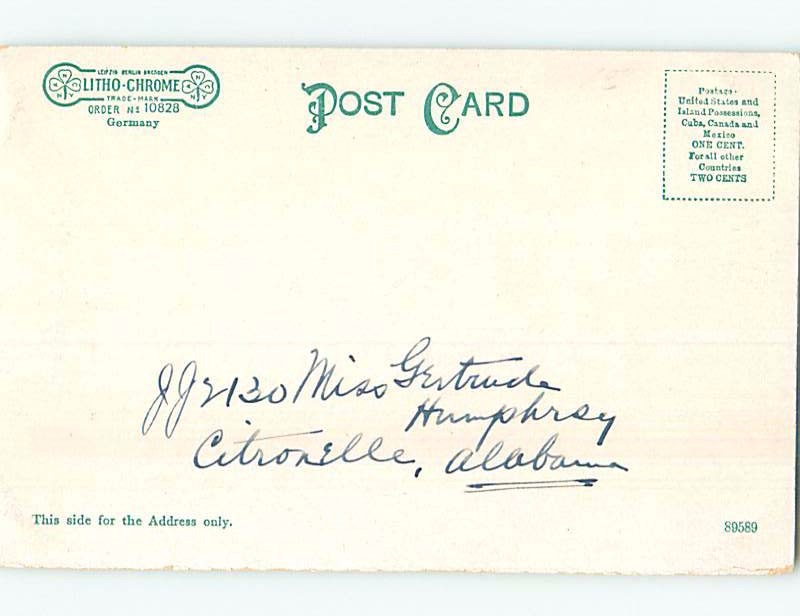 LEIPZIG BERLIN DRESDEN
LITHO-CHROME
TRADE-MARK
ORDER No 10828
Germany
POST CARD
Postage-
United States and
Island Possessions,
Cuba, Canada and
Mexico
ONE CENT.
For all other
Countries
TWO CENTS
JJ2130 Miss Gertrude
Humphrey
Citronelle, Alabama
This side for the Address only.
89589